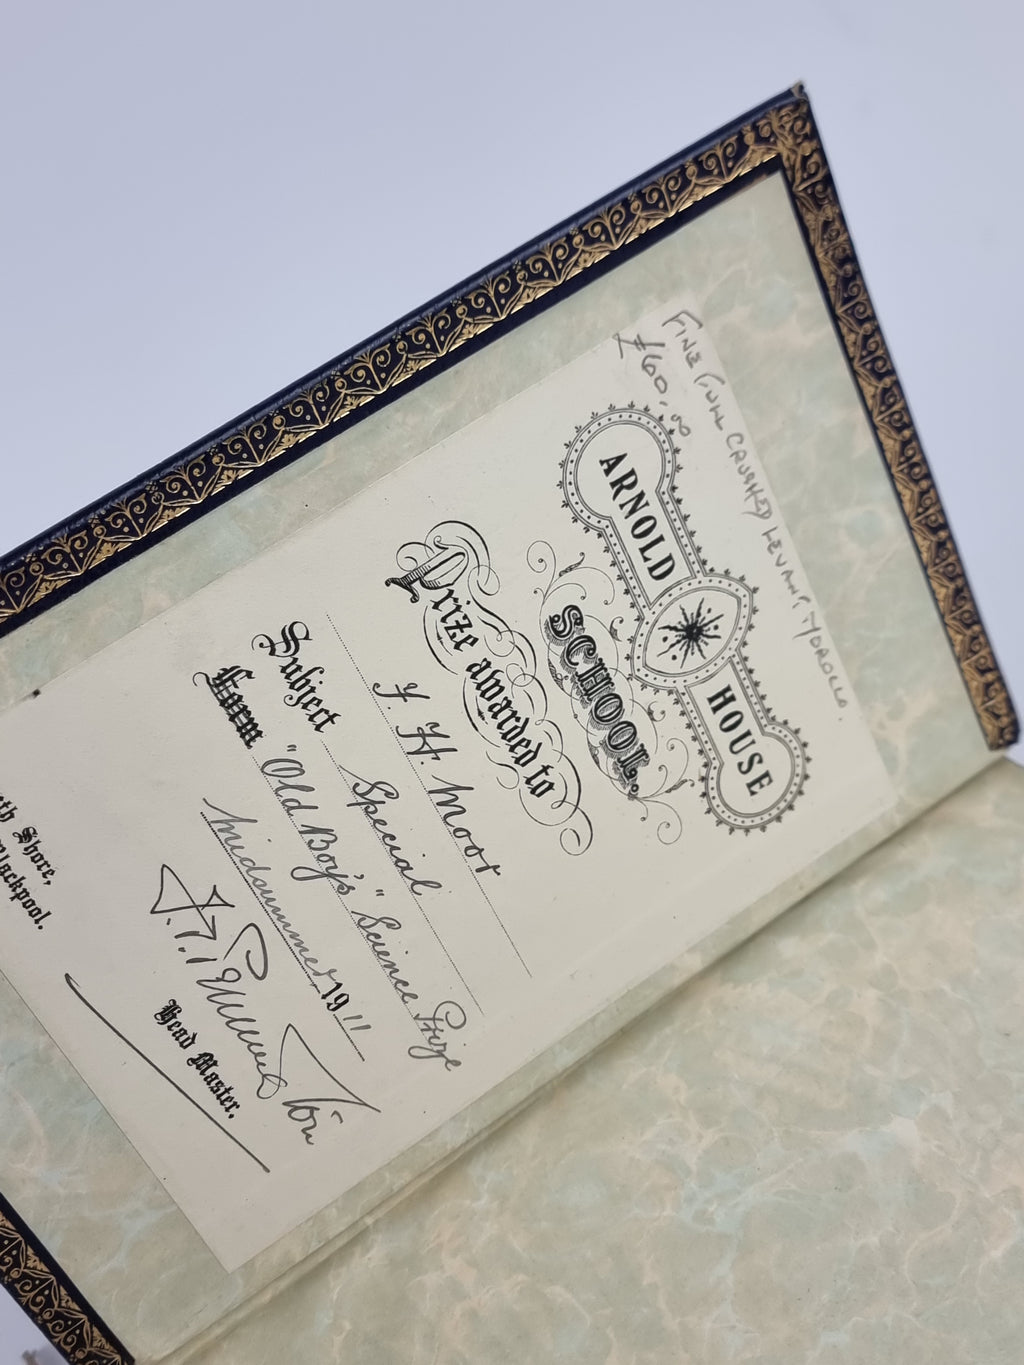 FINE FULL CRUSHED LEVANT MOROCCO.
£60.00
ARNOLD HOUSE
SCHOOL.
Prize awarded to
J. H. Moor
Subject Special
Form "Old Boy's" Science Prize
Midsummer 1911
Head Master.
th Shore,
Blackpool.